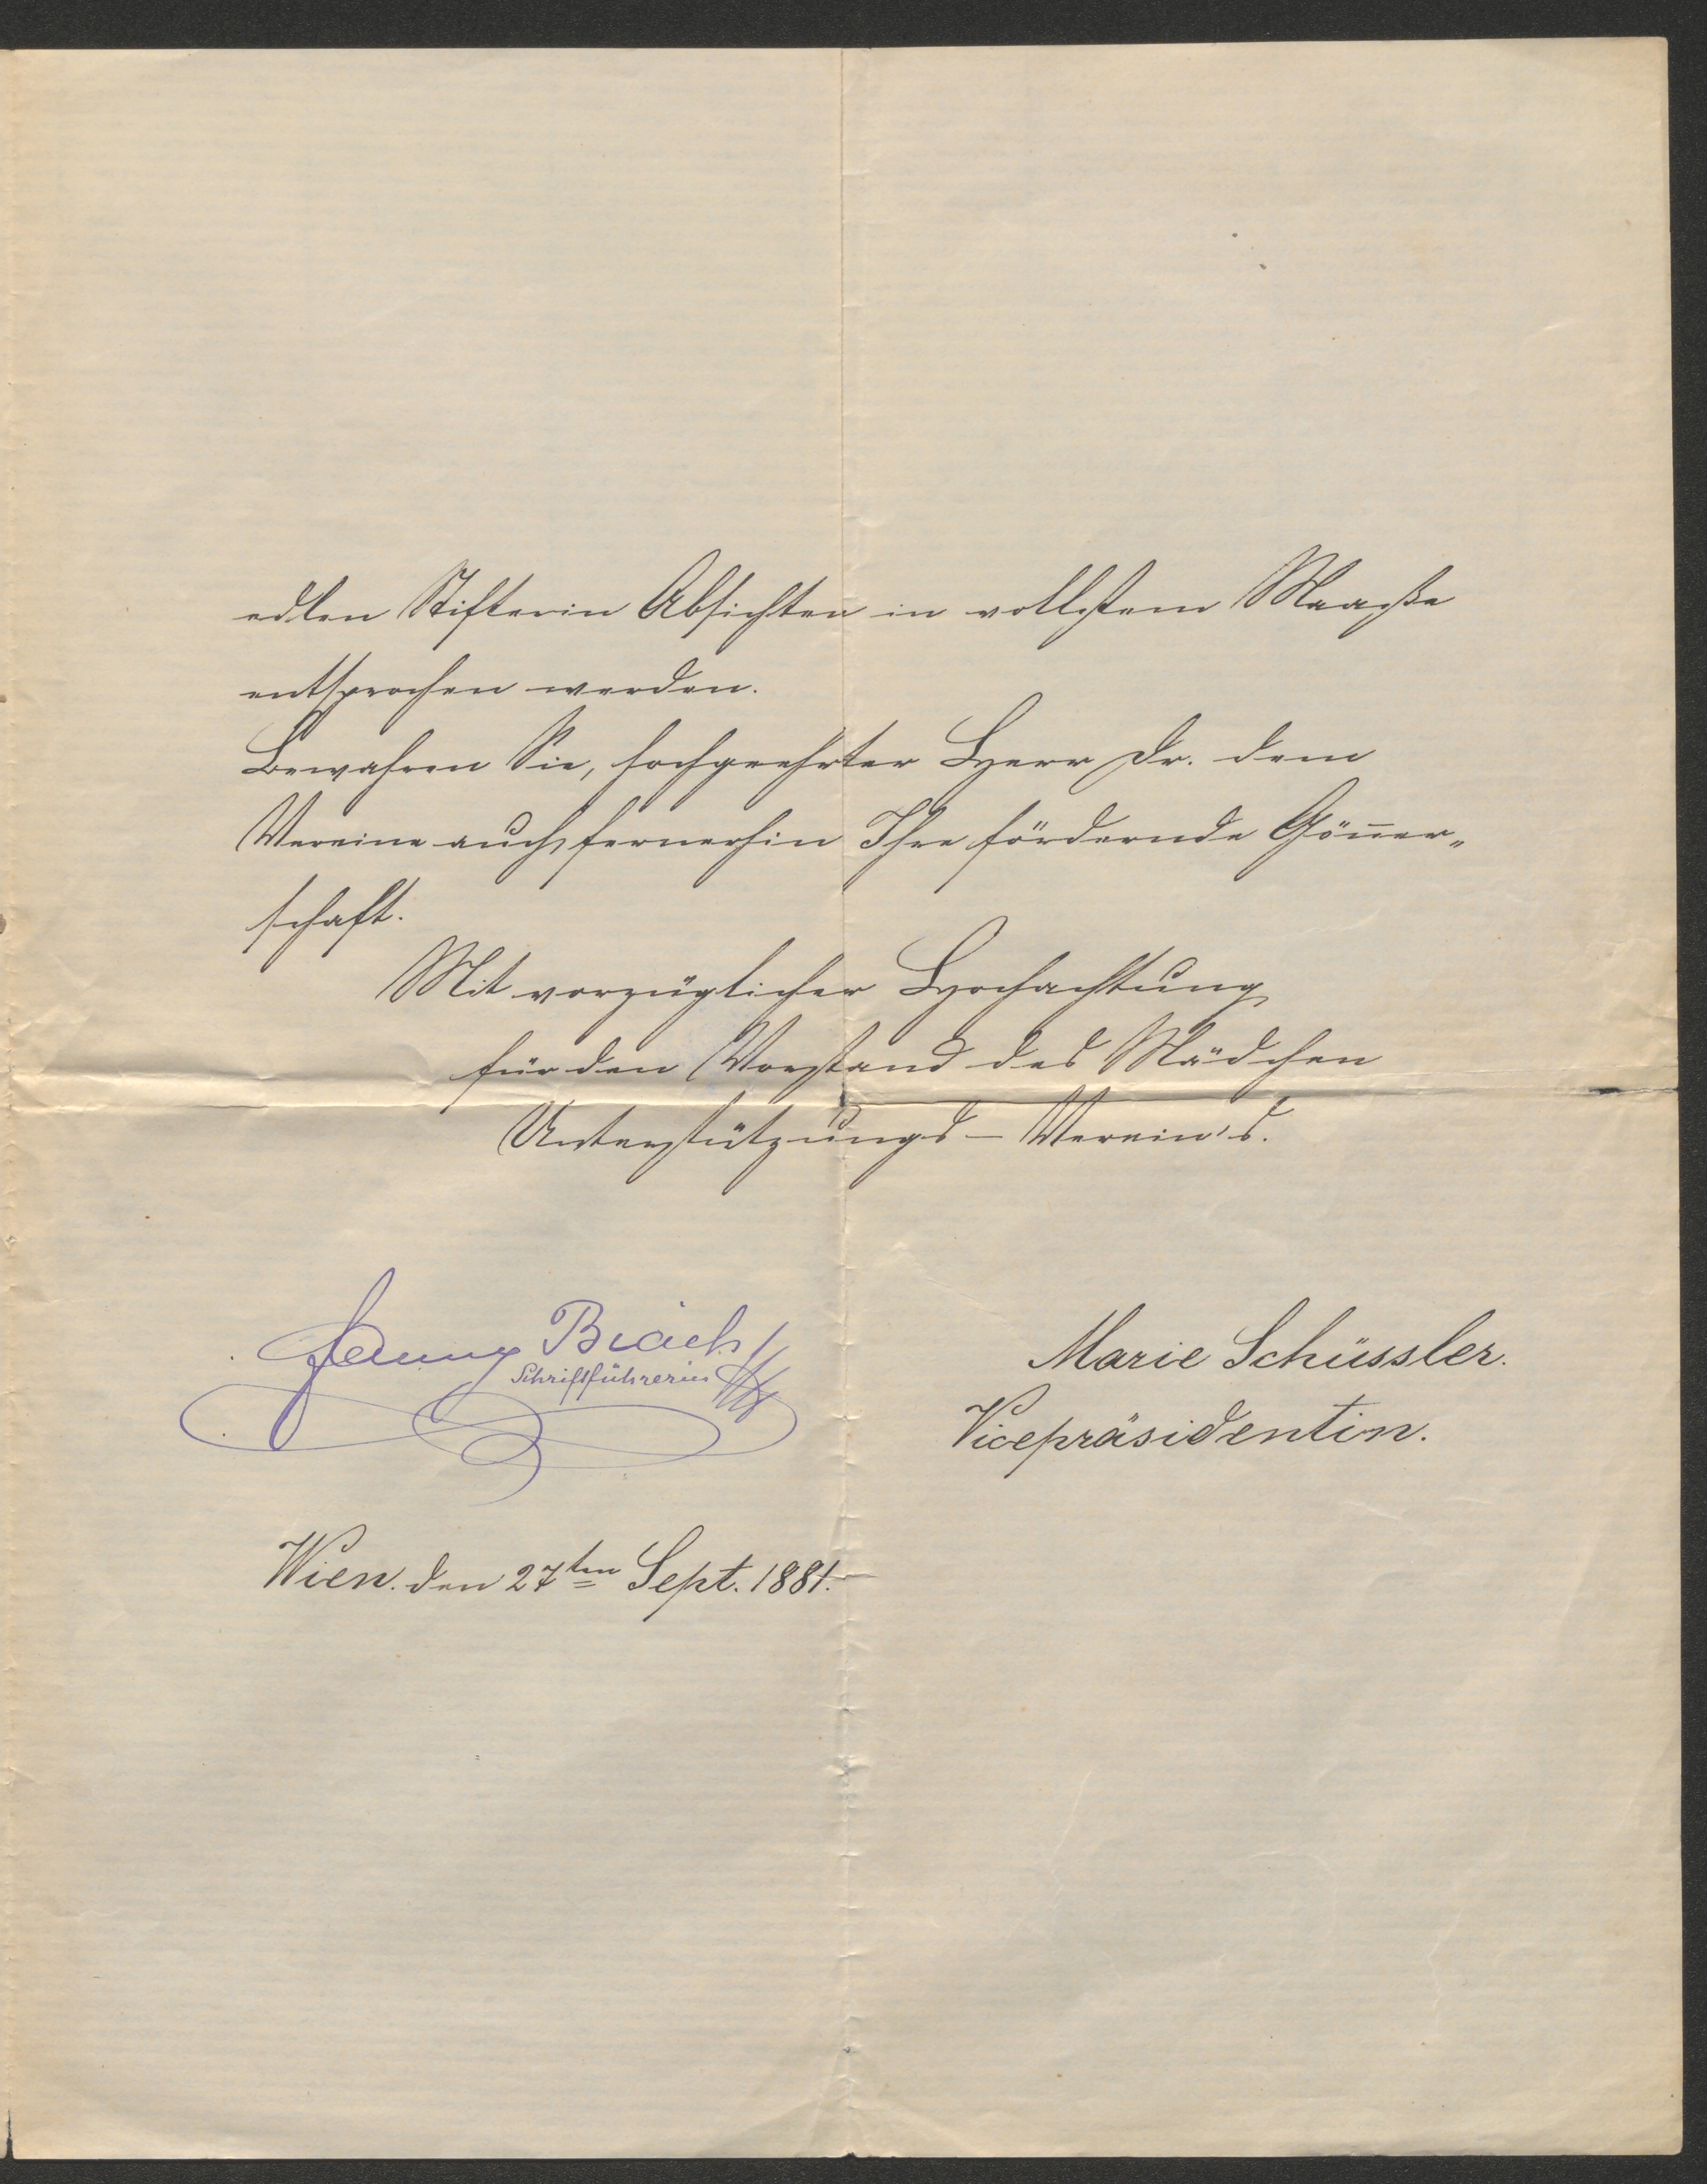 edlen Stifterin Absichten in vollstem Maaße
entsprochen werden.
Bewahren Sie, hochgeehrter Herr Dr. dem
Vereine auch fernerhin Ihre fördernde Gön̄er„
schaft.
Mit vorzüglicher Hochachtung
für den Vorstand des Mädchen
Unterstützungs-Verein's.
Fanny Biach
Schriftführerin
Marie Schüssler.
Vicepräsidentin.
Wien. den 27ten Sept. 1881.